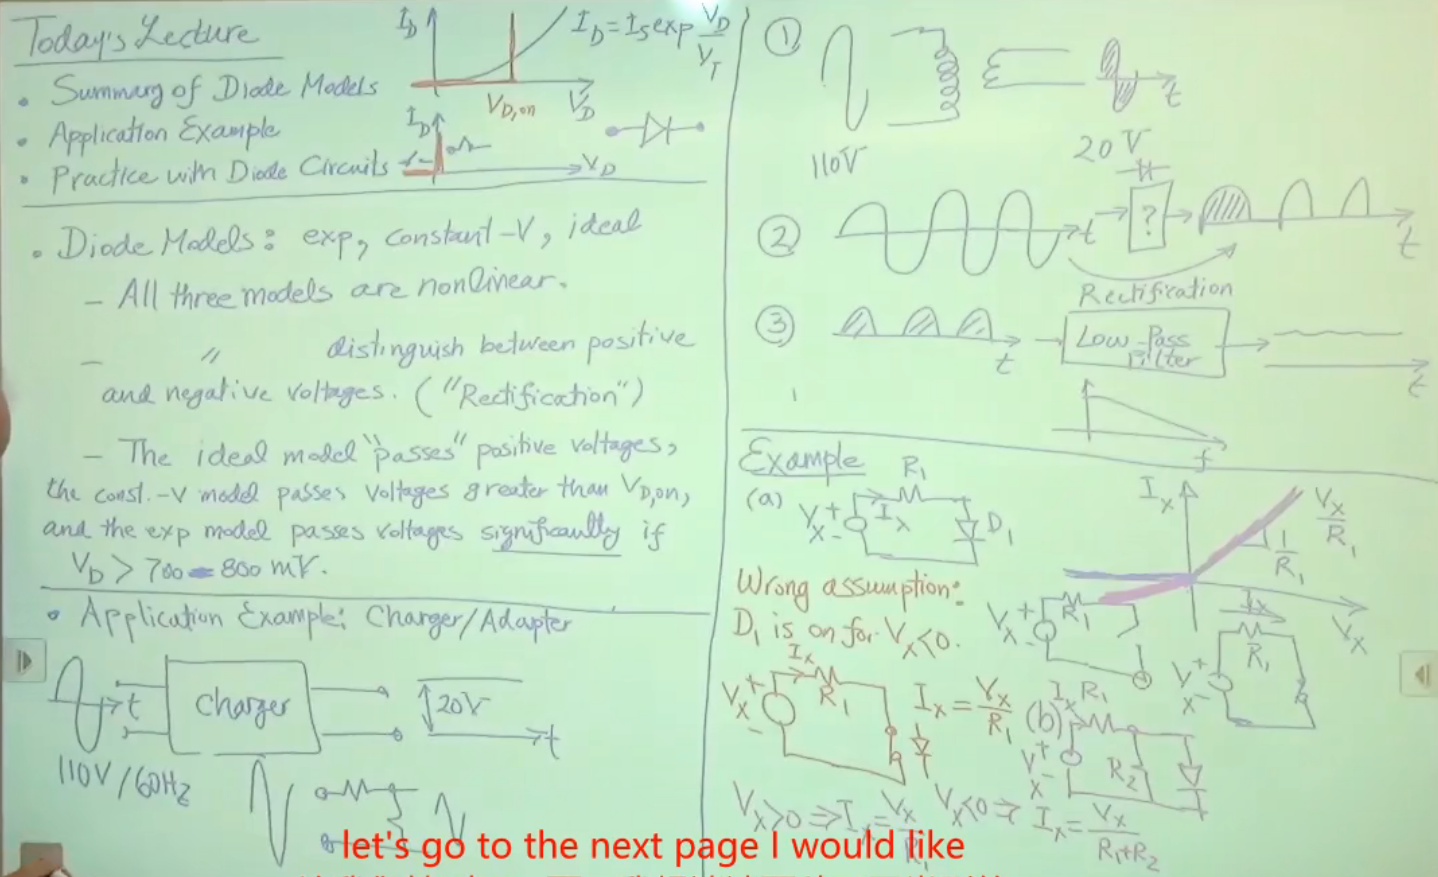 Today's Lecture
• Summary of Diode Models
• Application Example
• Practice with Diode Circuits
I_D
I_D = I_S exp V_D/V_T
V_D,on
V_D
I_D
V_D
• Diode Models: exp, constant-V, ideal
– All three models are nonlinear.
– " distinguish between positive
and negative voltages. ("Rectification")
– The ideal model "passes" positive voltages,
the const.-V model passes voltages greater than V_D,on,
and the exp model passes voltages significantly if
V_D > 700 – 800 mV.
• Application Example: Charger/Adapter
t
Charger
20V
t
110V/60Hz
①
t
110V
20V
②
t
?
t
Rectification
③
t
Low-Pass
Filter
t
f
Example
(a)
R1
V_X
+
–
I_X
D1
I_X
V_X/R1
1/R1
V_X
Wrong assumption:
D1 is on for V_X<0.
V_X
+
–
R1
I_X
R1
V_X
+
–
I_X
R1
V_X
+
–
I_X = V_X/R1
(b)
I_X
R1
V_X
+
–
R2
V_X>0 ⇒ I_X = V_X/R1
V_X<0 ⇒ I_X = V_X/(R1+R2)
let's go to the next page I would like